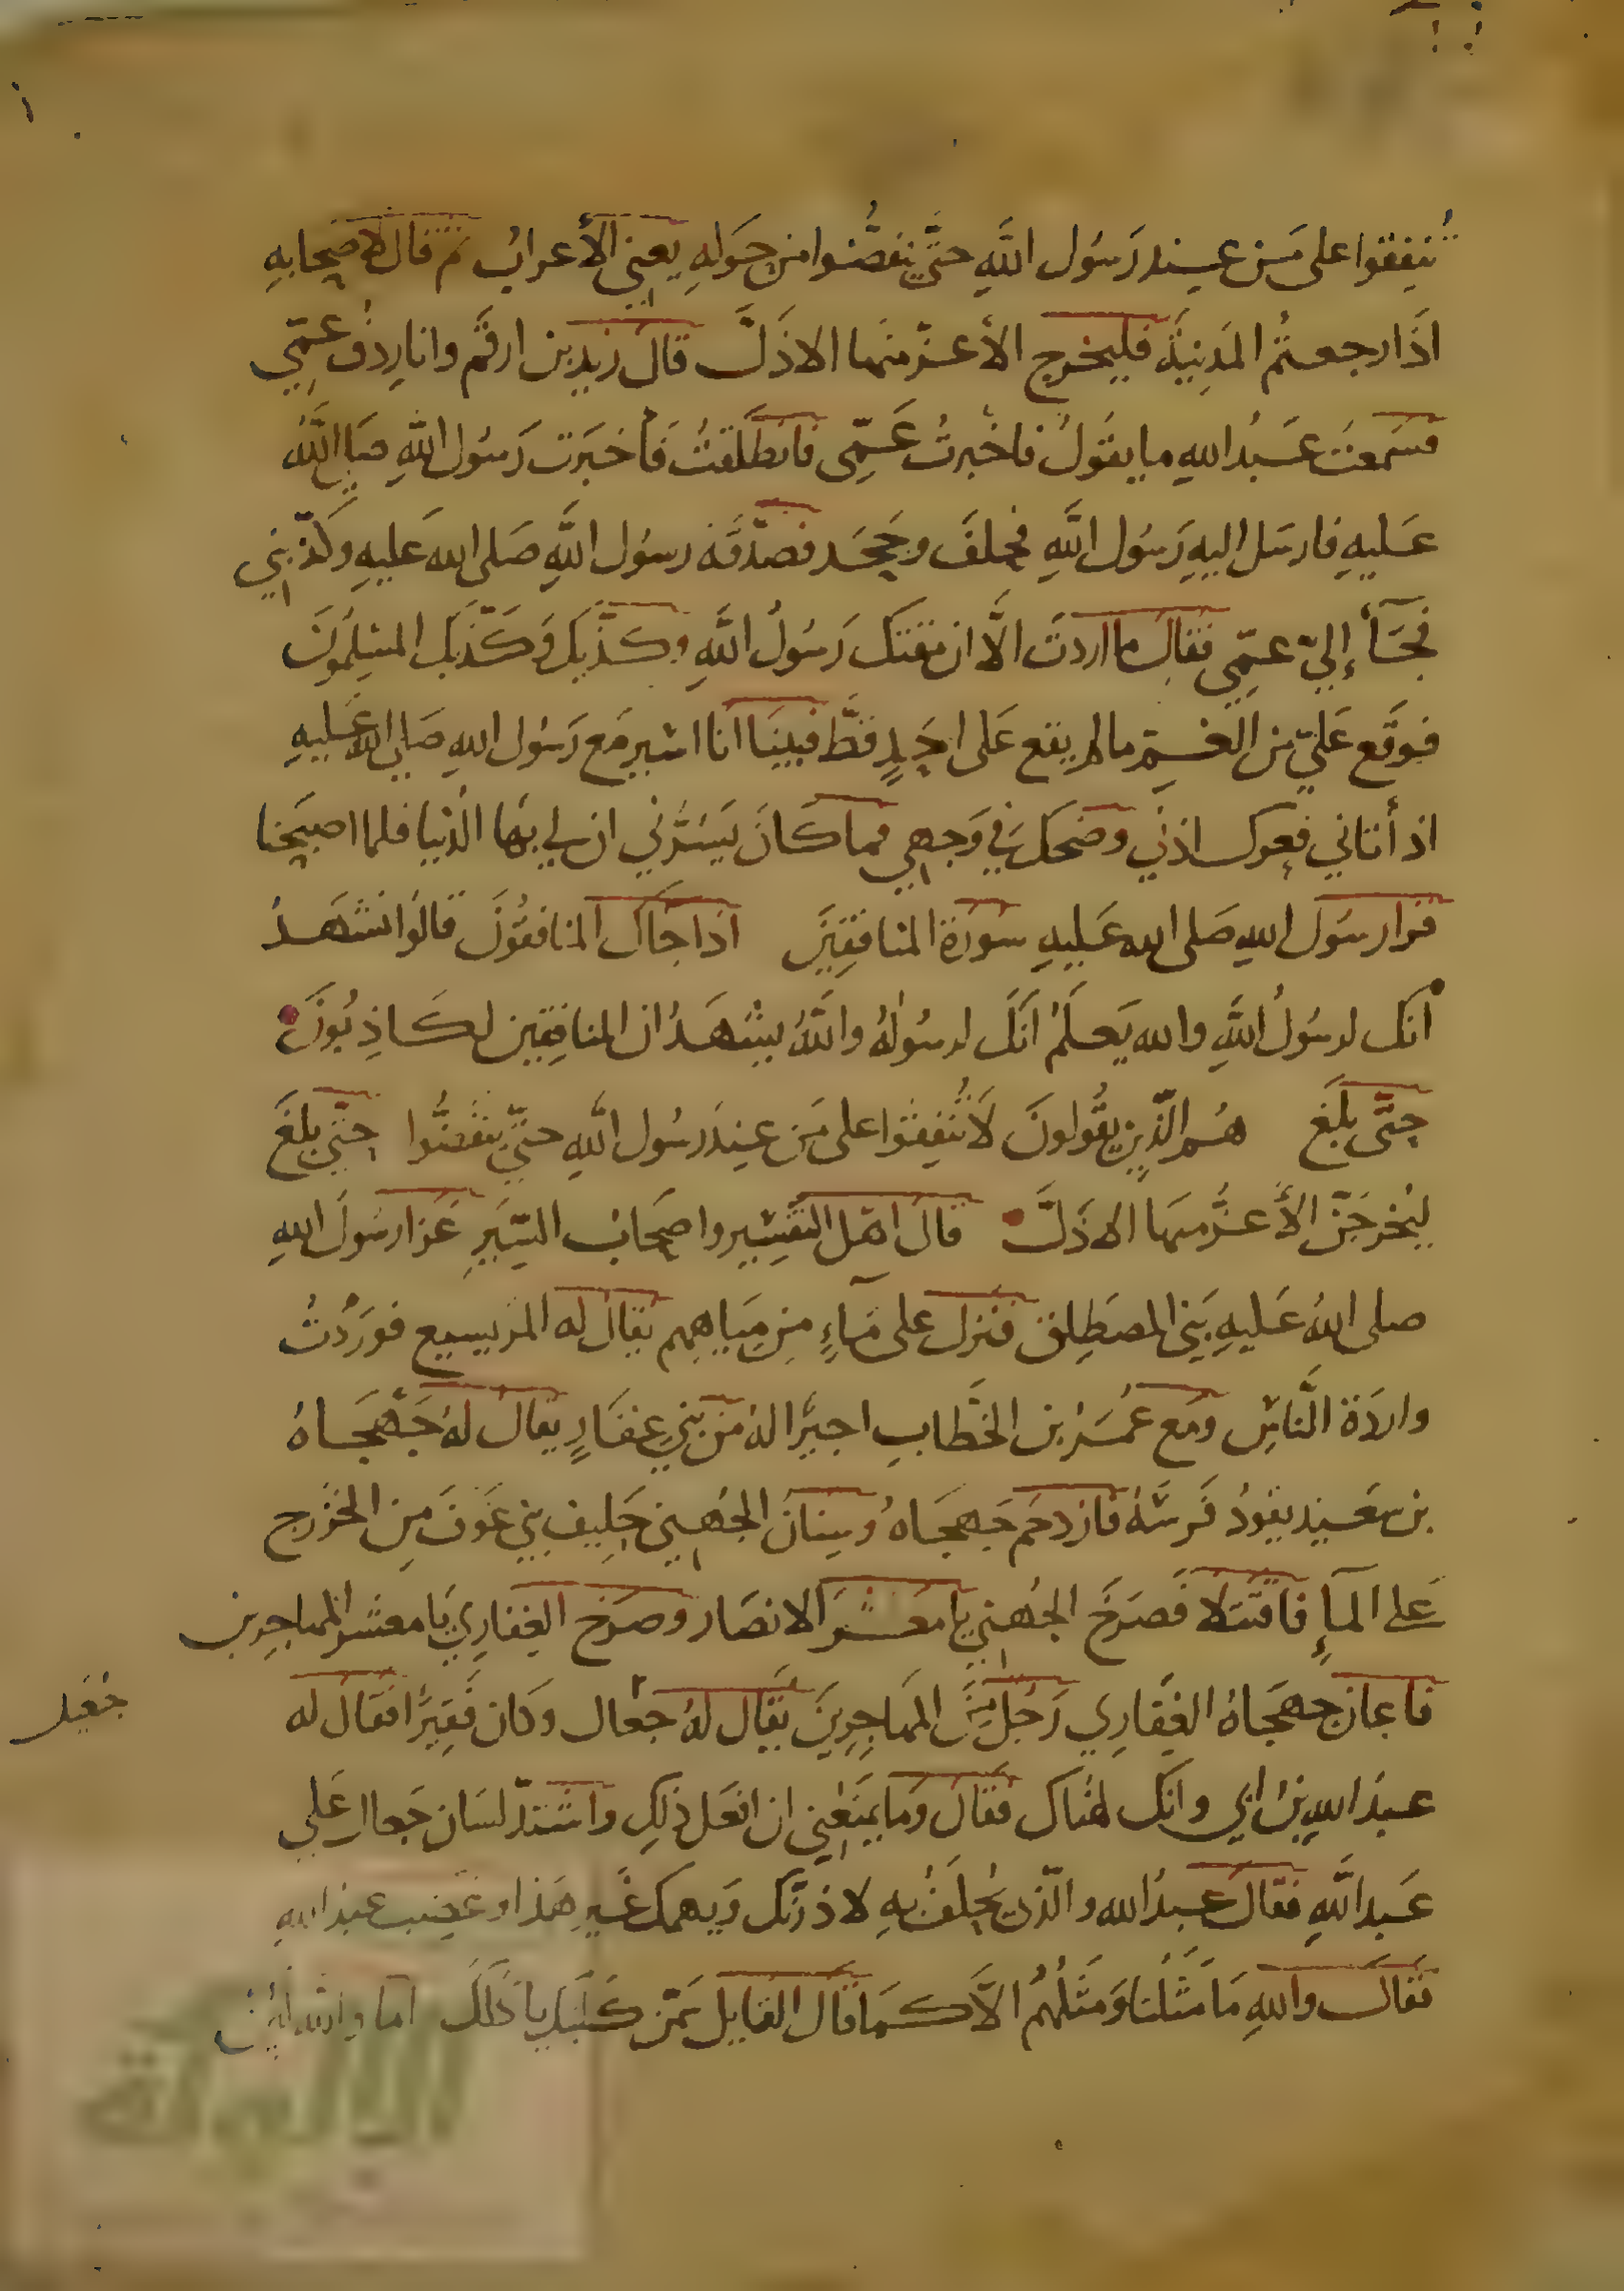 تُنفِقوا على مَن عِند رَسُول اللَّهِ حتَّى ينفضُّوا من حَولهِ يعني الأعراب ثم قال لاصحابهِ
اذَا رجعتُم المَدِينَة فليخرج الأعزّ منهَا الاذَلَّ قالَ زيد بن ارقَم وانا رِدْف عمِّي
فسَمعتُ عَبدُ اللهِ ما يقُولُ فاخْبرتُ عَمِّي فانطَلَقتُ فَأخبَرت رَسُول اللهِ صَلى اللَّهُ
عَليهِ فارسَل اليهِ رَسُول اللَّهِ فحلفَ وجَحَد فصَدَّقَه رسوُل اللَّهِ صَلى الله عَليهِ وكذّبني
فجَآءَ إليّ عمِّي فقالَ ما اردتَ الَّا ان مقتك رَسُولُ اللَّهِ وكذَّبَك وَكَذّبَك المسْلِمُونَ
فوقَع عَليّ من الغَم ما لم يقع عَلى احَدٍ قطَّ فبينَا انا اسْير مَع رَسُول اللهِ صَلى الله عَليهِ
اذ أتاني فعرك اذني وضحك في وَجهي فما كانَ يَسُرُّني ان لي بهَا الدّنيا فلما اصبحَنا
قرا رسُول اللهِ صَلى الله عَليهِ سُورَة المنافقِينَ اذا جَاك المنافقُونَ قالوُا نشهَدُ
انك لرسُولُ اللَّهِ والله يَعلَمُ انَكَ لرسُولهُ واللَّهُ يشْهَدُ ان المنافِقِين لكَاذِبُونَ
حتَّى بلَغ هُم الّذِين يقُولونَ لَا تُنفِقُوا على مَن عِندَ رسُول اللَّهِ حتّى ينفَضُّوا حتّى بلغَ
ليُخرجَنّ الأعزُّ منهَا الاذَلَّ قالَ اهل التفسِير واصحَاب السّيَرِ غَزا رسُولَ اللهِ
صلى اللهُ عَليهِ بَني المصْطَلِق فنزل على مَآءٍ مِن مِيَاهِهِم يقالُ له المريسيع فورَدْتُ
واردَة النَّاسِ ومَع عُمَرُ بن الخَطّابِ اجيرًا لهُ من بَني غِفَارٍ يقالُ لهُ جَهجَاهُ
بن سعَيد يقودُ فَرسَهُ فازدحَم جَهجَاهُ وسِنانُ الجُهني حَلِيف بني عَوفَ مِن الخَزرج
عَلى المآءِ فاقتتلا فَصرَخَ الجُهني يا معشَر الانصَار وصرَخ الغِفارِي يَا معشَر المهاجِرِين
فاعان جهجَاهُ الغِفَارِي رَجُلٌ مِنَ المهَاجِرِينَ يقالُ لهُ جعَال وكان فَقِيرًا فقال له
جعَيل
عبدُ اللهِ بنُ ابي وانَك لهُناك فقَالَ وَما يمنَعُني ان افعَل ذلِك واشتدّ لسَان جعَال عَلى
عَبد اللَّهِ فقَال عبدُ الله والّذي يُحلَفُ بهِ لاذرنّك ويهمك غَير هَذا وغضِب عبد اللهِ
فقَالَ واللهِ مَا مثَلُنا وَمَثَلُهُم الَّا كمَا قال القايل سَمّن كَلبَك ياكُلكَ اما والله لئِن